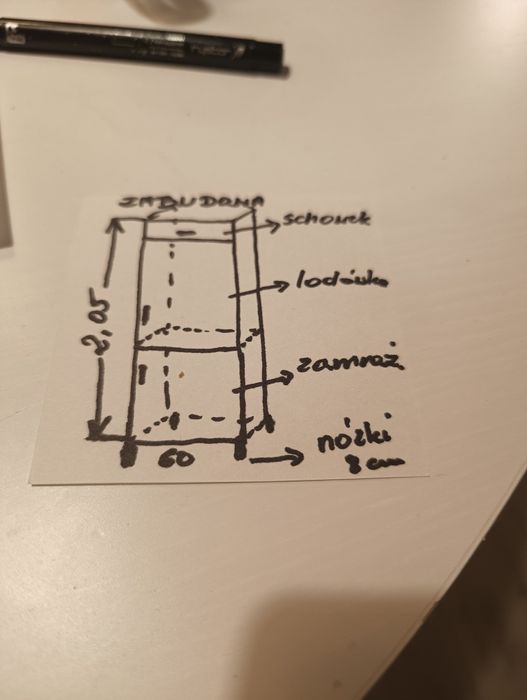 ZABUDOWA
schowek
lodówka
2,05
zamraż.
nóżki
8 cm
60